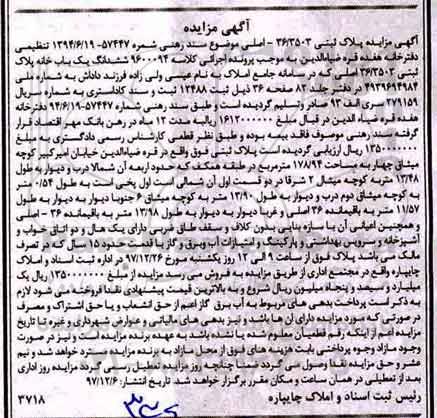 آگهی مزایده
آگهی مزایده پلاک ثبتی ۳۶/۳۵۰۳ - اصلی موضوع سند رهنی شمره ۵۷۴۴۷-۱۳۹۴/۶/۱۹ تنظیمی
دفترخانه هفده قره ضیاءالدین به موجب پرونده اجرائی کلاسه ۹۶۰۰۰۹۴ ششدانگ یک باب خانه پلاک
ثبتی ۳۶/۳۵۰۳ اصلی که در سامانه جامع املاک به نام عیسی ولی زاده فرزند داداش به شماره ملی
۴۹۳۹۶۹۴۹۸۴ در دفتر جلد ۸۲ صفحه ۳۶ ذیل ثبت ۱۲۴۸۸ ثبت و سند کاداستری به شماره سریال
۲۷۹۱۵۹ سری الف ۹۳ صادر وتسلیم گردیده است و طبق سند رهنی شماره ۵۷۴۴۷-۹۴/۶/۱۹ دفترخانه
هفده قره ضیاء الدین در قبال مبلغ ۱۶۱۲۰۰۰۰۰۰ ریالبه مدت ۱۲ ماه در رهن بانک مهر اقتصاد قرار
گرفته سند رهنی موصوف فاقد بیمه بوده و طبق نظر قطعی کارشناس رسمی دادگستری به مبلغ
۱۳۵۰۰۰۰۰۰۰ ریال ارزیابی گردیده است پلاک ثبتی فوق واقع در قره ضیاءالدین خیابان امیرکبیر کوچه
میثاق چهار به مساحت ۱۷۸/۹۴ مترمربع در طبقه همکف که حدود اربعه آن شمالا درب و دیوار به طول
۱۳/۴۸ متر به کوچه میثاق ۲ شرقا در دو قسمت اول آن شمالی است اول پخی است به طول ۰/۵۴ متر
به کوچه میثاق دوم درب و دیوار به طول ۱۳/۹۰ متر به کوچه میثاق ۶ جنوبا دیوار به دیوار به طول
۱۱/۵۷ متر به باقیمانده ۳۶ اصلی و غربا دیوار به دیوار به طول ۱۳/۹۸ متر به باقیمانده ۳۶ - اصلی
و همچنین اعیانی آن با سازه بنایی بدون کلاف و سقف طاق ضربی دارای یک هال و دو اتاق خواب و
آشپزخانه و سرویس بهداشتی و پارکینگ و امتیازات آب وبرق و گاز با قدمت حدود ۱۵ سال که در تصرف
مالک می باشد پلاک فوق از ساعت ۹ الی ۱۲ روز یکشنبه مورخ ۹۷/۱۲/۲۶ در اداره ثبت اسناد و املاک
چایپاره واقع در مجتمع اداری از طریق مزایده به فروش می رسد مزایده از مبلغ ۱۳۵۰۰۰۰۰۰۰ ریال یک
میلیارد و سیصد و پنجاه میلیون ریال شروع و به بالاترین قیمت پیشنهادی نقدا فروخته می شود لازم
به ذکر است پرداخت بدهی های مربوط به آب برق گاز اعم از حق انشعاب و یا حق اشتراک و مصرف
در صورتی که مورد مزایده دارای آن ها باشد و نیز بدهی های مالیاتی و عوارض شهرداری و غیره تا تاریخ
مزایده اعم از اینکه رقم قطعی ان معلوم شده یا نشده باشد به عهده برنده مزایده است و نیز در صورت
وجود مازاد وجوه پرداختی بابت هزینه های فوق از محل مازاد به برنده مزایده مسترد خواهد شد و نیم
عشر و حق مزایده نقدا وصول می گردد ضمنا چنانچه روز مزایده تعطیل رسمی گردد مزایده روز اداری
بعد از تعطیلی در همان ساعت و مکان مقرر برگزار خواهد شد. تاریخ انتشار: ۹۷/۱۲/۶
رئیس ثبت اسناد و املاک چایپاره
۳۷۱۸